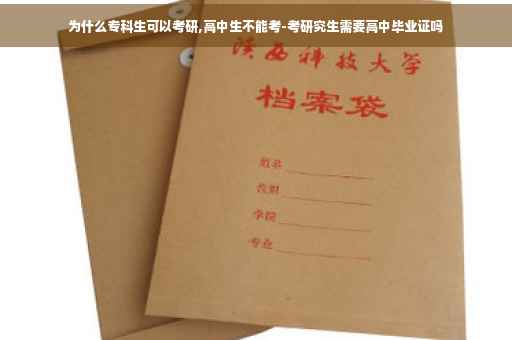 为什么专科生可以考研,高中生不能考-考研究生需要高中毕业证吗
陕西科技大学
档案袋
姓名
学院
专业